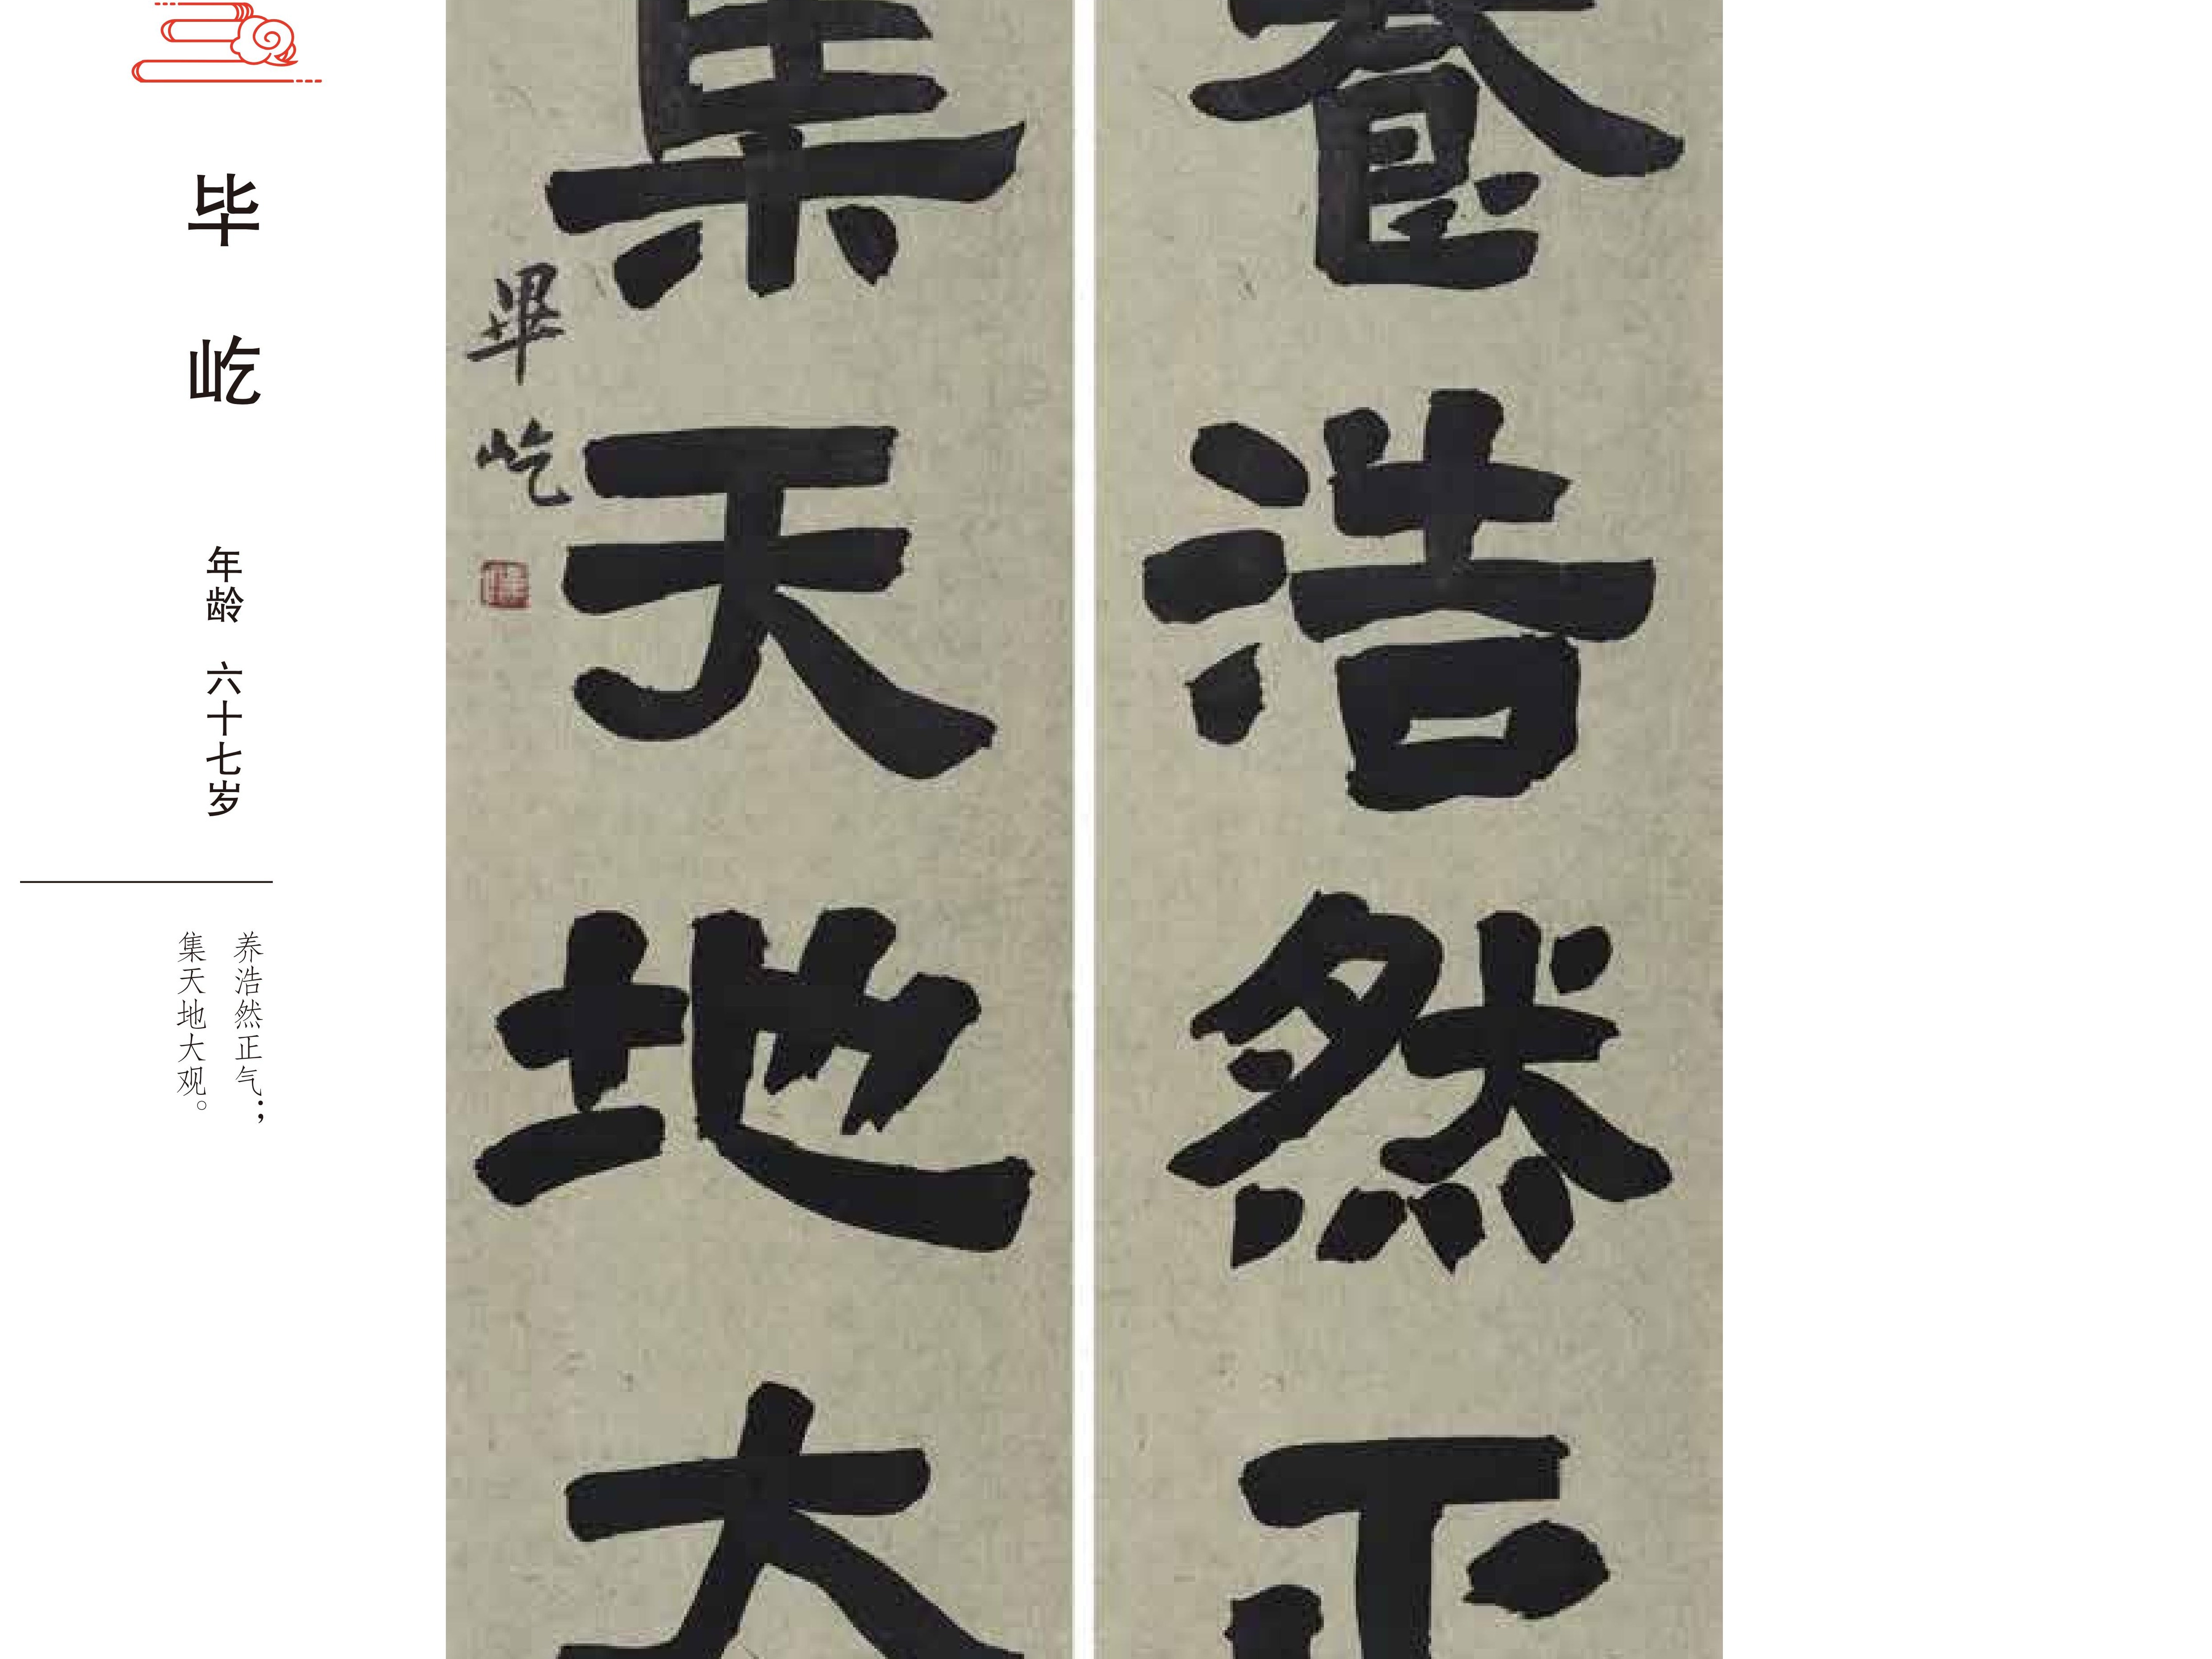 養浩然正
集天地大
畢屹
毕屹
年龄 六十七岁
养浩然正气；
集天地大观。